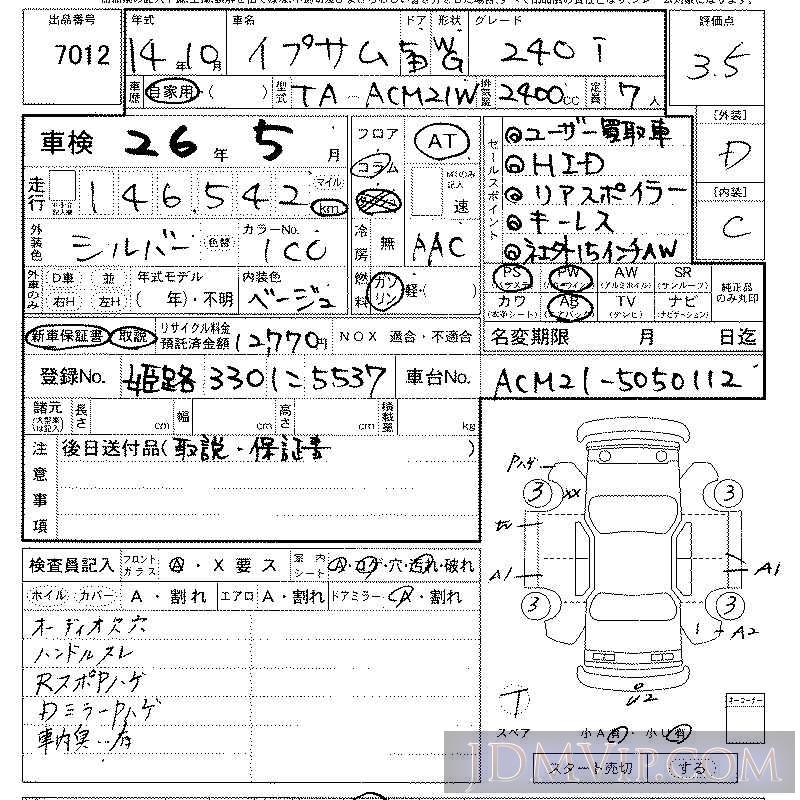 出品番号 年式 車名 ドア 形状 グレード 評価点
7012 14年10月 イプサム 5 WG 240i 3.5
車歴 自家用・( ) 型式 TA-ACM21W 排気量 2400cc 定員 7人
[外装] D
[内装] C
車検 26年 5月
フロア AT
コラム
走行 146,542 マイル km
速
セールスポイント
◎ユーザー買取車
◎HID
◎リアスポイラー
◎キーレス
◎社外15インチAW
外装色 シルバー 色替 カラーNo. 1C0
冷房 無 AAC
外車のみ D車 並 右H 左H 年式モデル ( 年)・不明 内装色 ベージュ
燃料 ガソリン 軽・( )
PS PW AW SR
(パワステ) (パワーウィンド) (アルミホイル) (サンルーフ)
純正品のみ丸印
カワ AB TV ナビ
(本革シート) (エアバック) (テレビ) (ナビゲーション)
新車保証書・取説 リサイクル料金預託済金額 12,770円 NOX 適合・不適合
名変期限 月 日迄
登録No. 姫路 330 に 5537 車台No. ACM21-5050112
諸元 (大型車は記入) 長さ cm 幅 cm 高さ cm 積載量 kg
注意事項 後日送付品(取説・保証書 )
検査員記入 フロントガラス A・X要ス 室内シート A・コゲ・穴・汚れ・破れ
ホイル カバー A・割れ エアロ A・割れ ドアミラー A・割れ
オーディオ穴穴
ハンドルスレ
RスポPハゲ
DミラーPハゲ
車内臭い有
Pハゲ
XX
3
3
A1
A1
3
3
A2
U2
T
スペア
小A有・小U有
オーナー
スタート売切 する
JDMVIP.COM